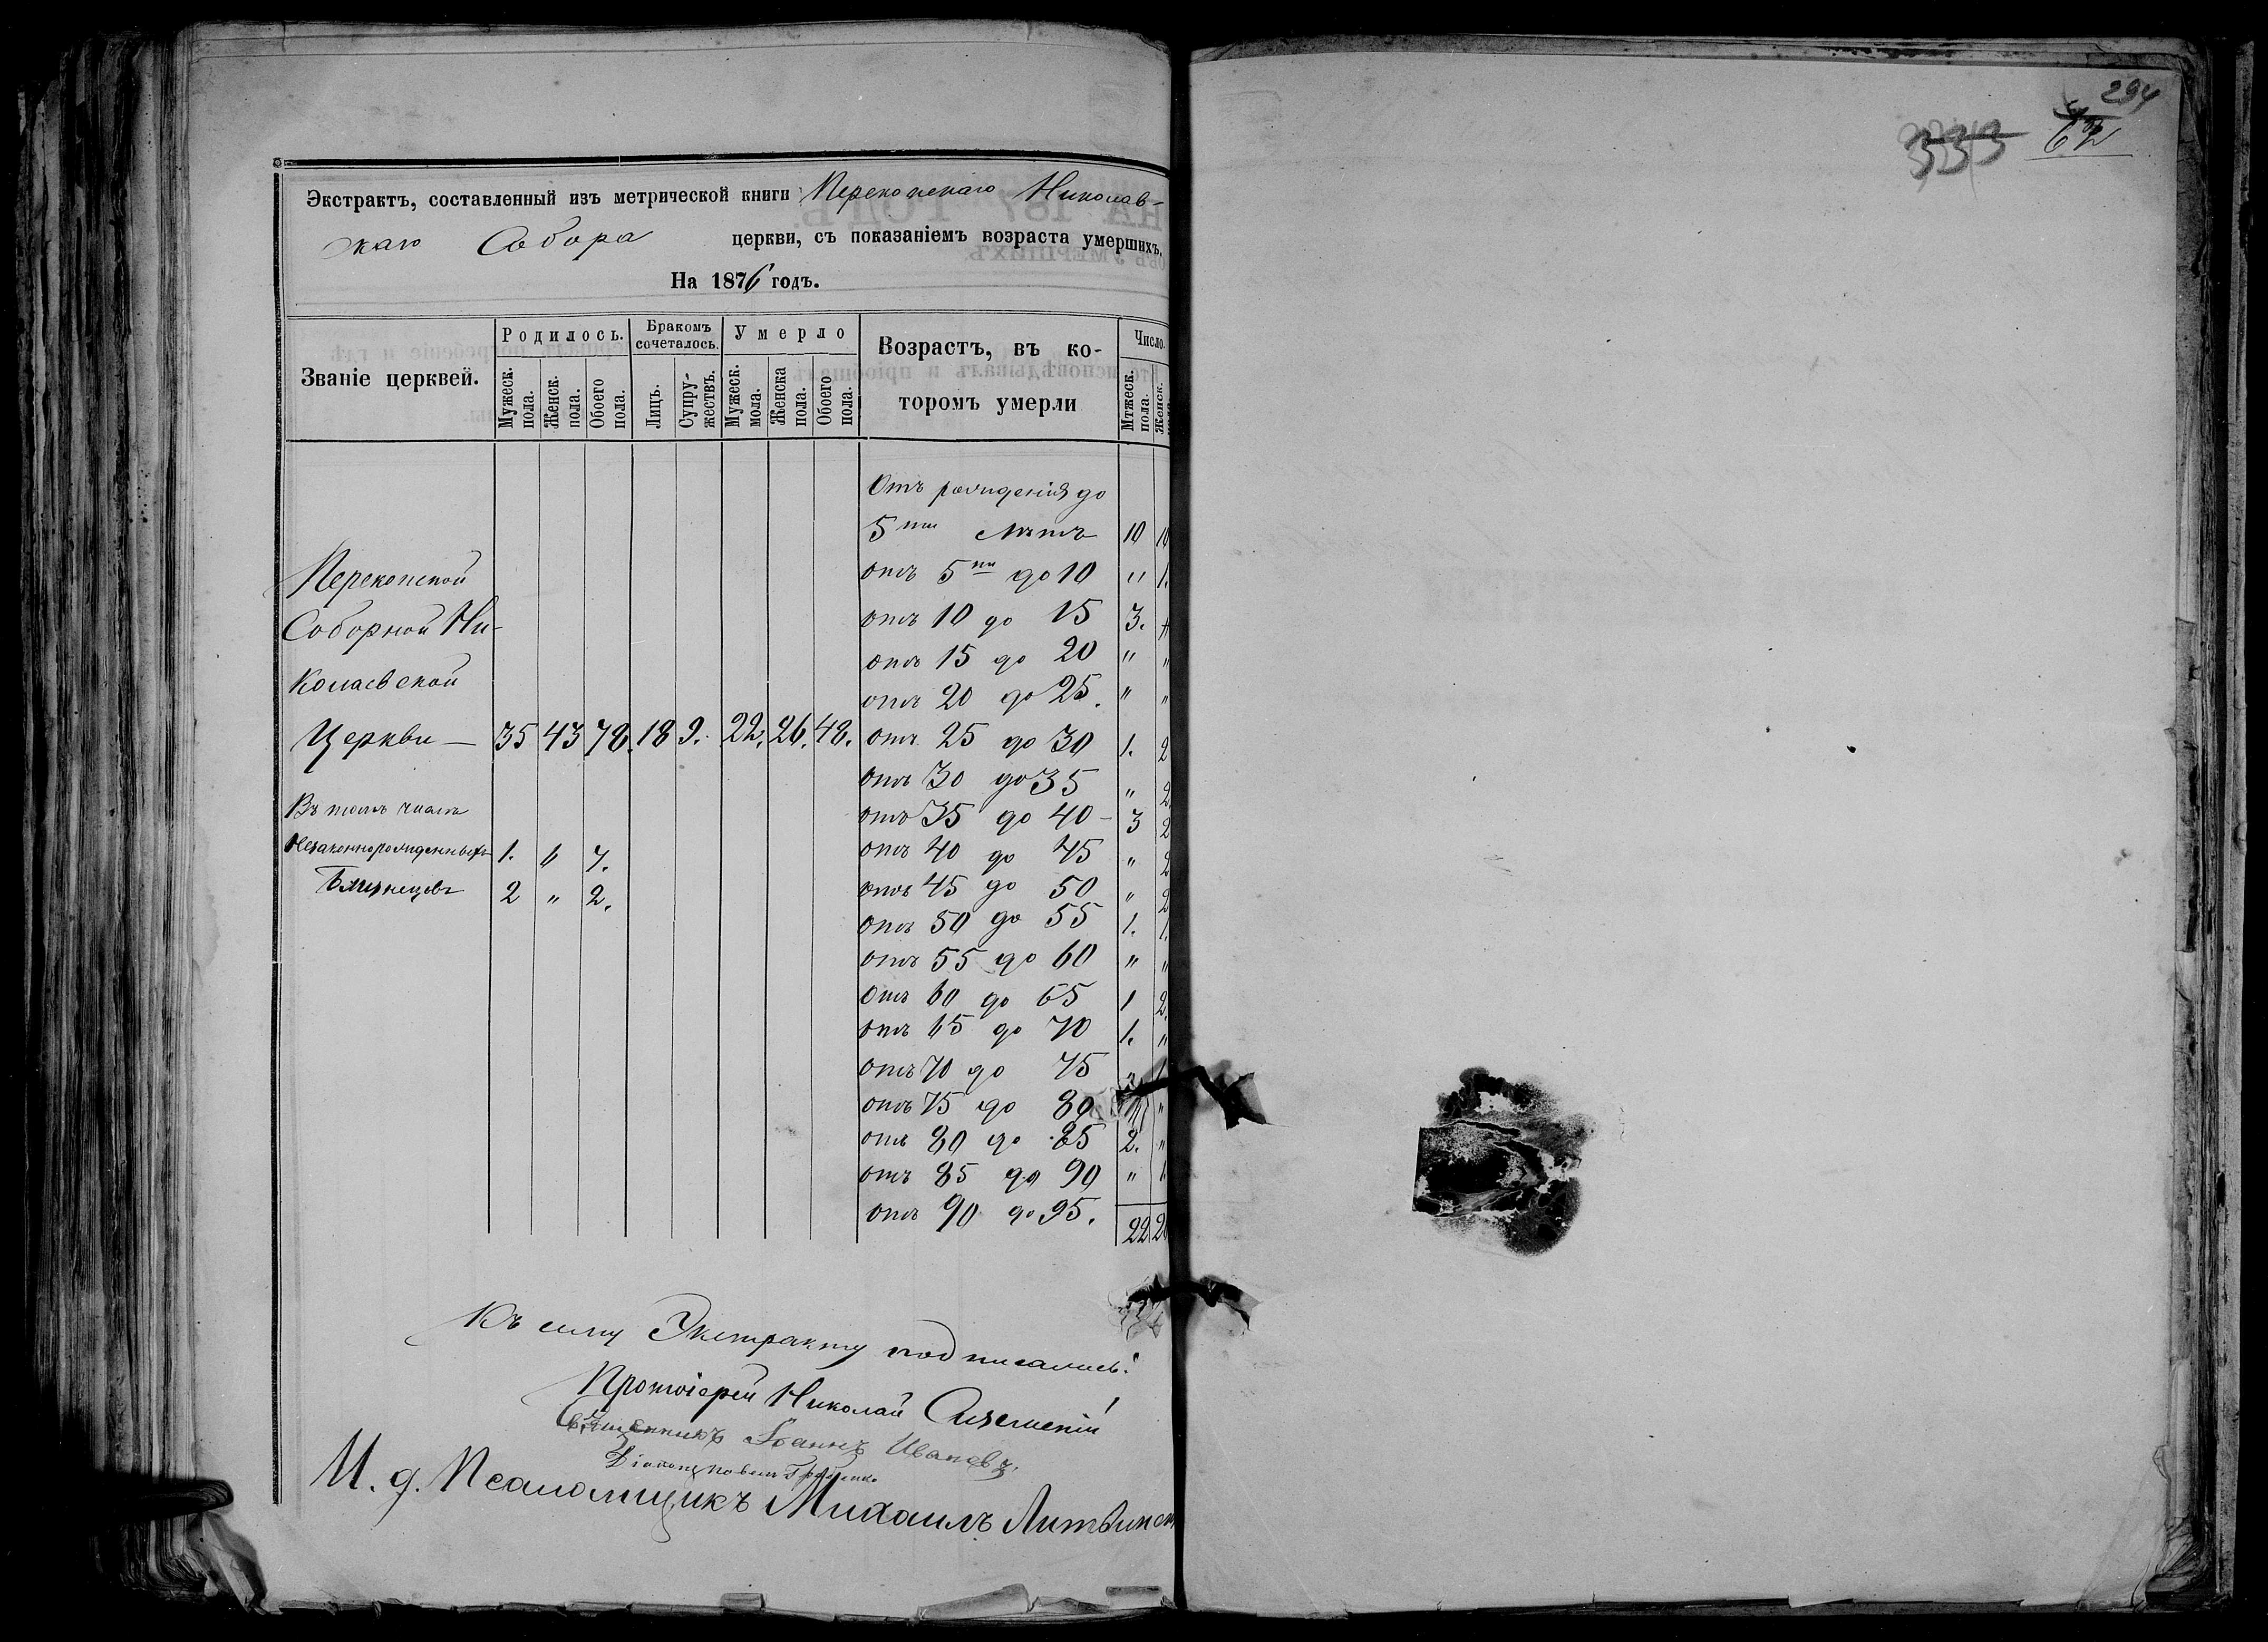 294
333 62
Экстрактъ, составленный изъ метрической книги Перекопскаго Николаев-
скаго Собора церкви, съ показаніемъ возраста умершихъ.
На 1876 годъ.
Званіе церквей. Родилось. Бракомъ сочеталось. Умерло Возрастъ, въ ко- Число.
Мужеск. пола. Женск. пола. Обоего пола. Лицъ. Супру- жествъ. Мужеск. мола. Женска пола. Обоего пола. торомъ умерли Мтжеск. пола. Женск.
Отъ рожденія до
5ти лѣтъ 10 10
Перекопской отъ 5ти до 10 " 1.
Соборной Ни- отъ 10 до 15 3.
отъ 15 до 20 " "
колаевской отъ 20 до 25. " "
Церкви — 35 43 78. 18 9. 22. 26. 48. отъ 25 до 30 1. 2
отъ 30 до 35 " 2
Въ томъ числѣ отъ 35 до 40 – 3 2
Незаконнорожденныхъ 1. " отъ 40 до 45 " 2
Близнецовъ 2 " 2. отъ 45 до 50 " 2
отъ 50 до 55 1. 1.
отъ 55 до 60 " "
отъ 60 до 65 1 2.
отъ 65 до 70 1. "
отъ 70 до 75
отъ 75 до 80 "
отъ 80 до 85 2. "
отъ 85 до 90 "
отъ 90 до 95.
22 2
Къ сему Экстракту подписались:
Протоіерей Николай
Священникъ Іоаннъ Ивановъ.
Діаконъ Павелъ
И. д. Псаломщикъ Михаилъ Литвинен